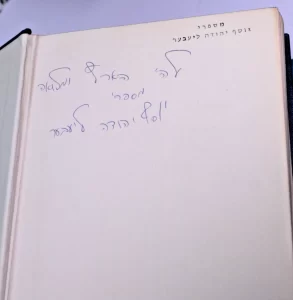 מספרי
יוסף יהודה ליעבער
לה' הארץ ומלואה
מספרי
יוסף יהודה ליעבער